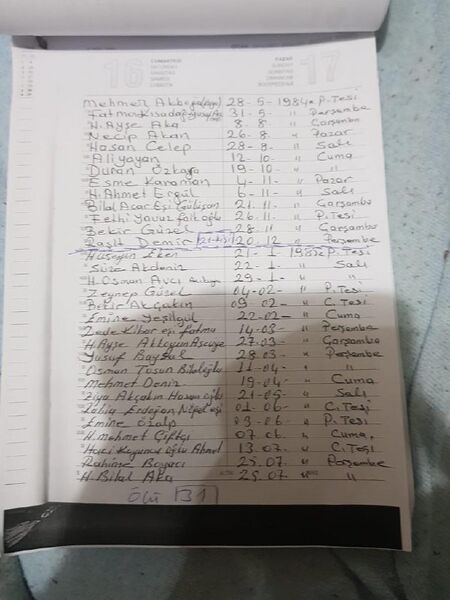 16 CUMARTESİ PAZAR 17
Mehmet Akbeğ 28-5-1984 P.Tesi
31-5- " Perşembe
H. Ayşe Aka 8-8- " Çarşamba
Necip Akan 26-8- " Pazar
Hasan Celep 28-8- " Salı
Ali yayan 12-10- " Cuma
Duran Özkaya 19-10- " "
Esme Karaman 4-11- " Pazar
H. Ahmet Ergül 6-11- " Salı
Bilal Acar Eşi Gülişan 21.11- " Çarşamba
Fethi Yavuz 26-11- " P.Tesi
Bekir Güsel 28.11 " Çarşamba
Raşit Demir 20.12 " Perşembe
Hüseyin Eken 21-1- P.Tesi
Akdeniz 22-1- " Salı
H. Osman Avcı 29-1- " "
Zeynep Güsel 04-02- " P.Tesi
Bekir Akçakın 09-02- " C.Tesi
Emine Yeşilgül 22-02- " Cuma
Zade Kibar eşi Fatma 14-03- " Perşembe
H. Ayşe 27-03- " Çarşamba
Yusuf Baysal 28.03- " Perşembe
Osman Tosun 11-04- " "
Mehmet Deniz 19-04- " Cuma
Ziya Akçakın Hasan oğlu 21-05- " Salı
Erdoğan 01-06- " C.Tesi
Emine 03-06- " P.Tesi
H. Mehmet Çiftçi 07.06. " Cuma,
Hacı Kuyumcu oğlu Ahmet 13.07- " C.Tesi
Rahime Boyacı 25.07. " Perşembe
H. Bilal Aka 25.07 " "
ÖLÜ 31